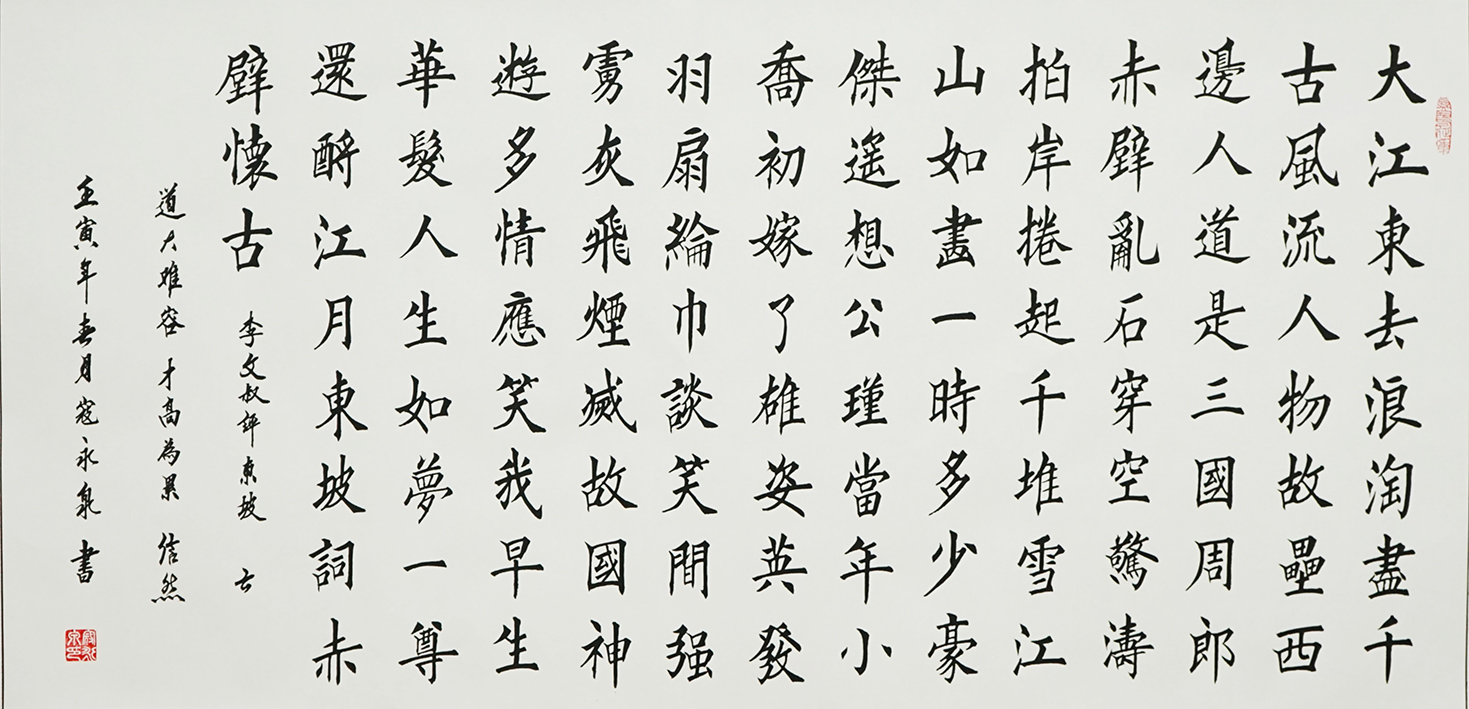 大江東去浪淘盡千
古風流人物故壘西
邊人道是三國周郎
赤壁亂石穿空驚濤
拍岸捲起千堆雪江
山如畫一時多少豪
傑遙想公瑾當年小
喬初嫁了雄姿英發
羽扇綸巾談笑間强
虜灰飛煙滅故國神
遊多情應笑我早生
華髮人生如夢一尊
還酹江月東坡詞赤
壁懷古 李文叔評東坡 云
道大难容才高為累 信然
壬寅年春月寇永泉 書